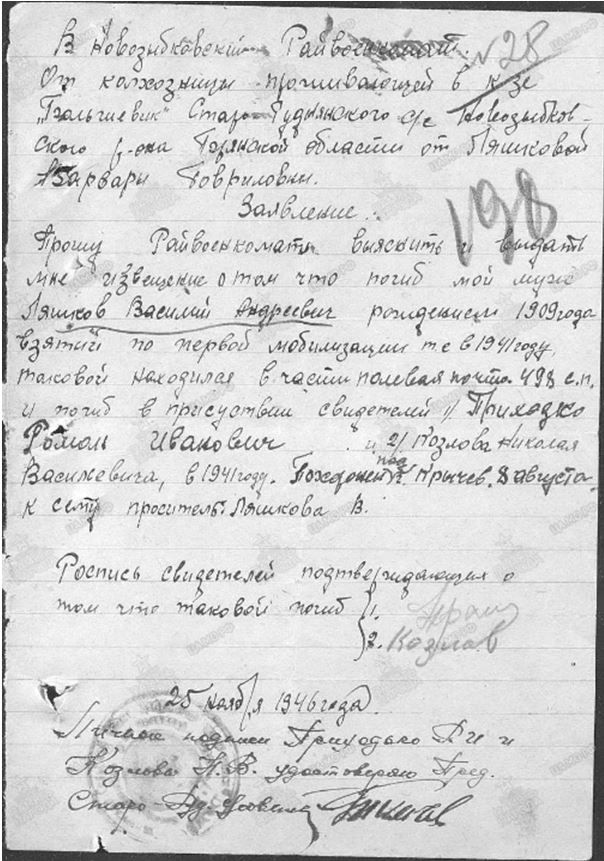 В Новозыбковский Райвоенкомат.
№ 28
От колхозницы проживающей в к-зе
"Пальчевик" Старо Руднянского с/с Новозыбков-
ского р-она Брянской области от Ляшковой
Варвары Говриловны.
Заявление.
198
Прошу Райвоенкомат выяснить и выдать
мне извещение о том что погиб мой муж
Ляшков Василий Андреевич рождением 1909 года
взятий по первой мобилизации т.е в 1941 году,
таковой находился в части полевая почта. 498 с.п.
и погиб в присуствии свидетелей 1/ Приходко
Роман Иванович и 2/ Козлова Николая
Василевича, в 1941 году. под Кричев. 8 августа.
к сему проситель Ляшкова В.
Роспись свидетелей подтверждающих о
том что таковой погиб 1.
2. Козлов
25 ноября 1946 года.
Личные подписи Приходько Р И и
Козлова Н. В. удостоверяю Пред.
Старо-